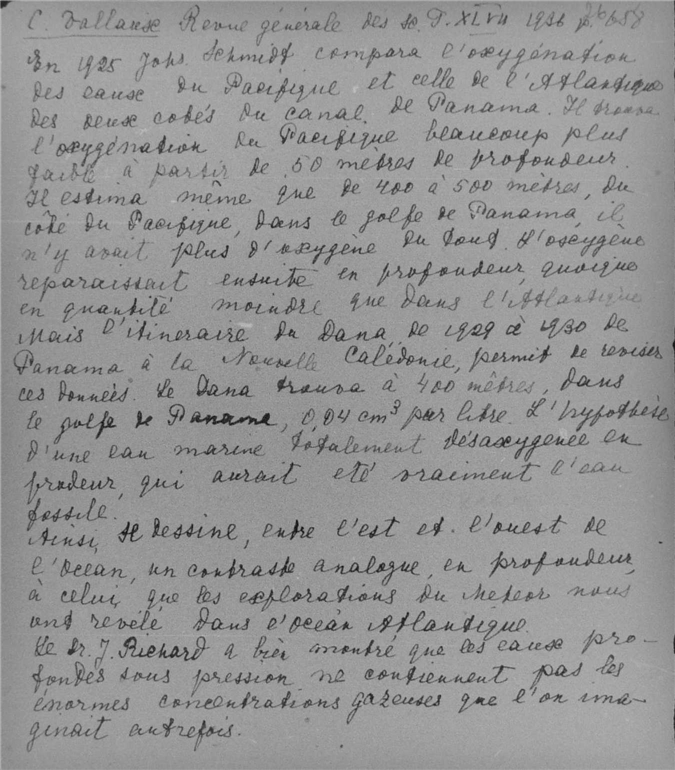 C. Vallaux Revue générale des Sc. T. XLVII 1936 p. 658
En 1925 Johs. Schmidt compara l'oxygénation
des eaux du Pacifique et celle de l'Atlantique
des deux cotés du canal de Panama. Il trouva
l'oxygénation du Pacifique beaucoup plus
faible à partir de 50 mètres de profondeur.
Il estima même que de 400 à 500 mètres, du
côté du Pacifique, dans le golfe de Panama, il
n'y avait plus d'oxygène du tout. L'oxygène
reparaissait ensuite en profondeur, quoique
en quantité moindre que dans l'Atlantique
Mais l'itineraire du Dana, de 1929 à 1930 de
Panama à la Nouvelle Calédonie, permit de reviser
ces données. Le Dana trouva à 400 mètres, dans
le golfe de Panama, 0,04 cm³ par litre. L'hypothèse
d'une eau marine totalement désaxygenée en
prodeur, qui aurait eté vraiment l'eau
fossile.
Ainsi, se dessine, entre l'est et l'ouest de
l'Ocean, un contraste analogue, en profondeur,
à celui, que les explorations du Meteor nous
ont revélé dans l'Océan Atlantique.
Le Dr. J. Richard a bien montré que les eaux pro-
fondes sous pression ne contiennent pas les
énormes concentrations gazeuses que l'on ima-
ginait autrefois.